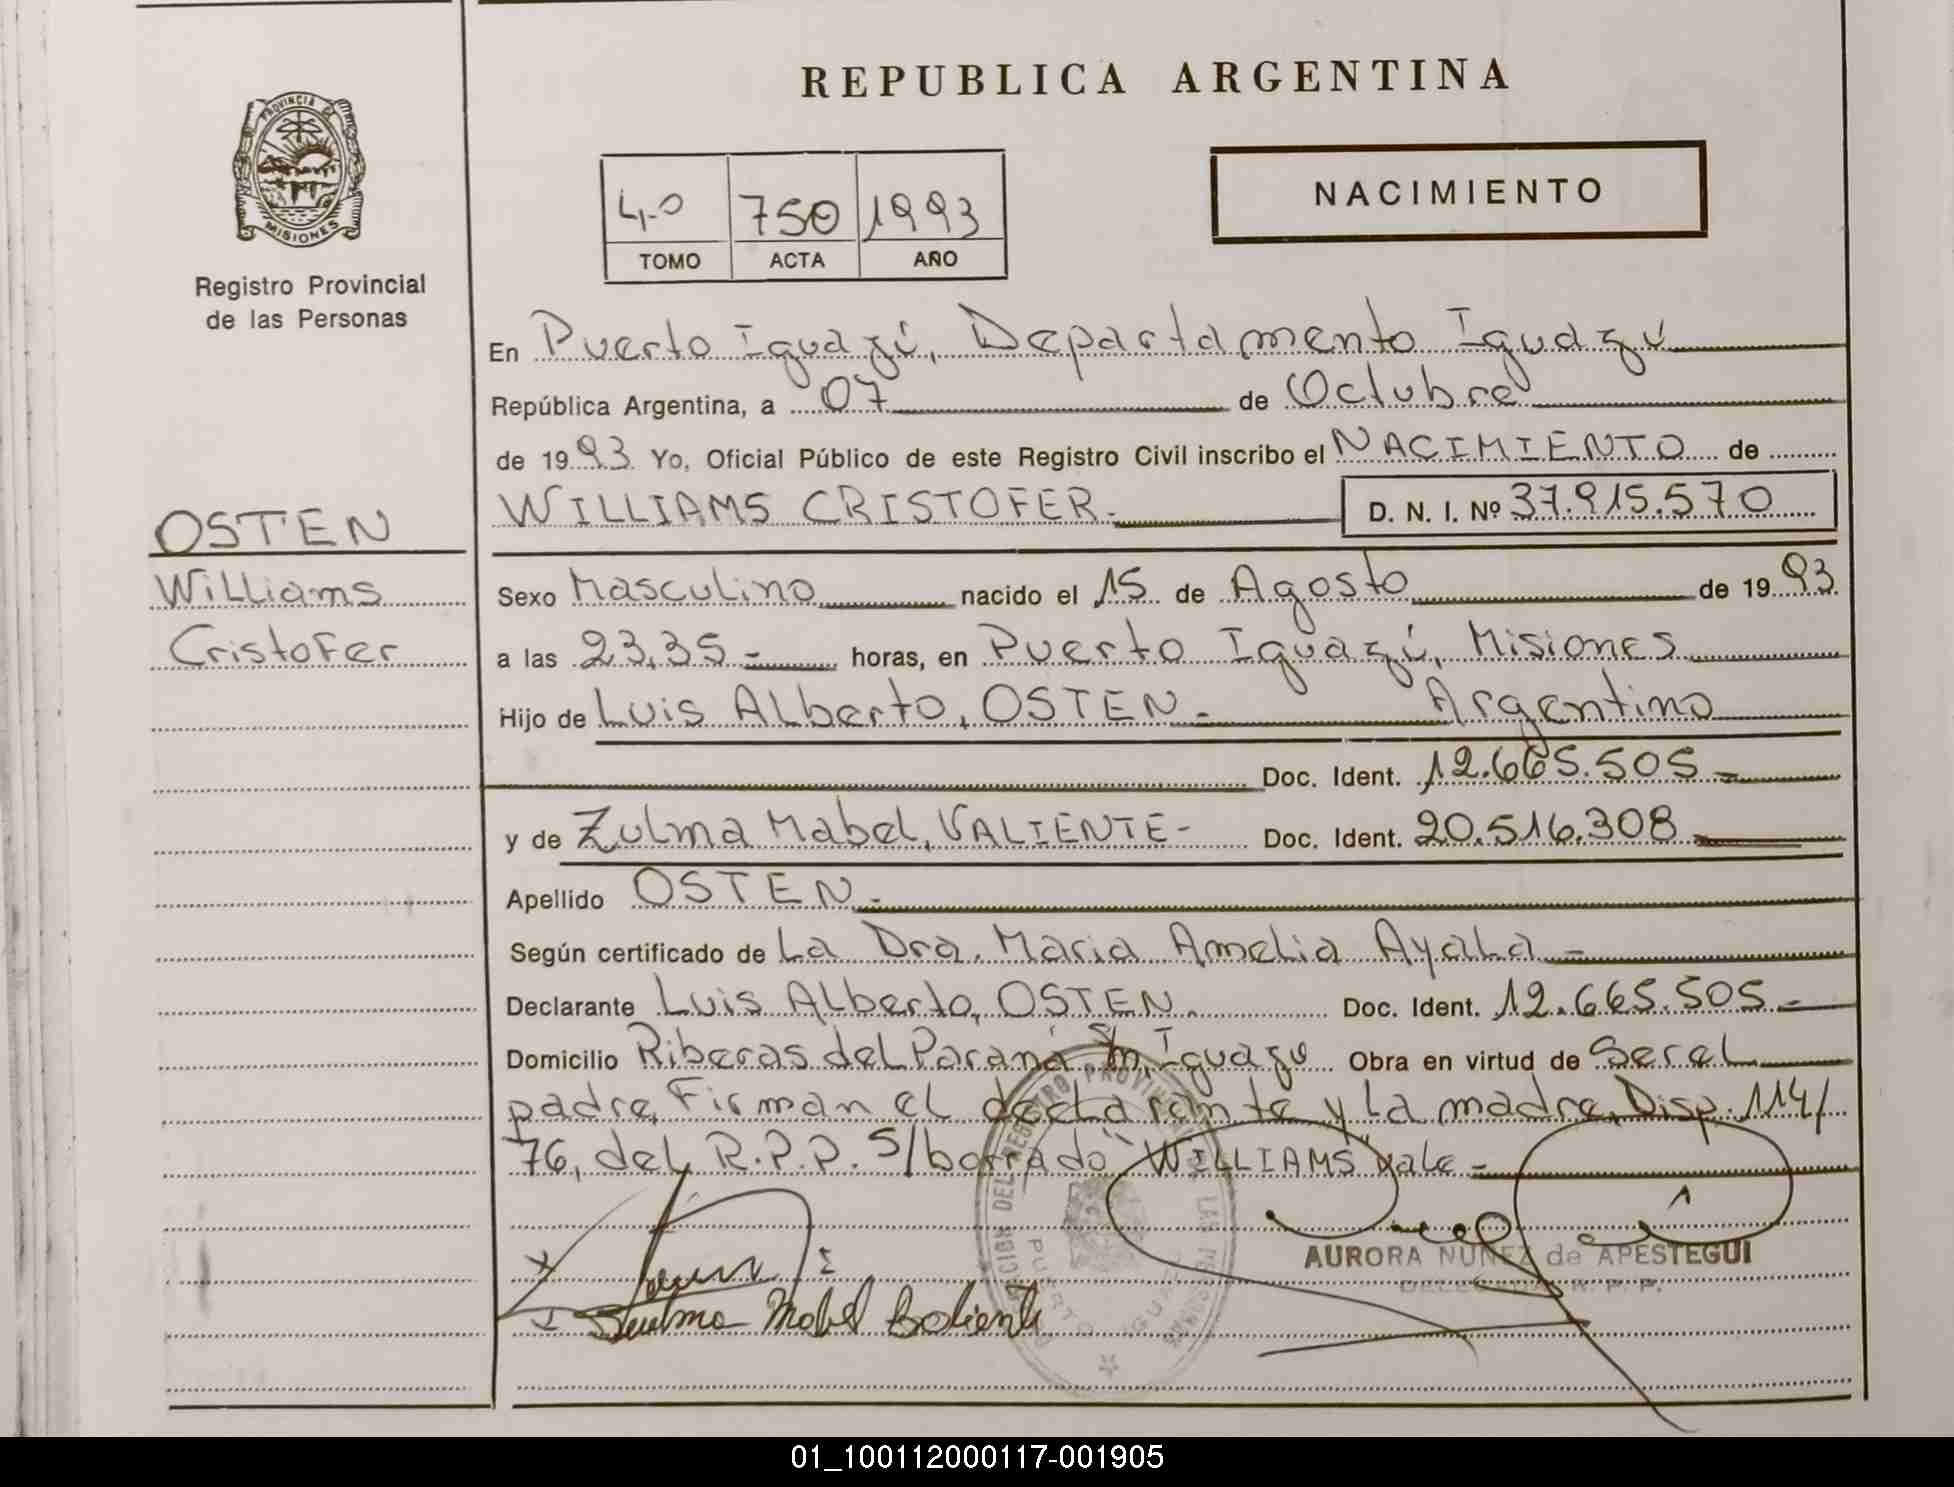 REPUBLICA ARGENTINA
PROVINCIA DE
MISIONES
Registro Provincial
de las Personas
4º 750 1993
TOMO ACTA AÑO
NACIMIENTO
En Puerto Iguazú, Departamento Iguazú
República Argentina, a 07 de Octubre
de 1993 Yo, Oficial Público de este Registro Civil inscribo el NACIMIENTO de
WILLIAMS CRISTOFER.- D. N. I. Nº 37.915.570
OSTEN
Williams
Cristofer
Sexo Masculino nacido el 15 de Agosto de 1993
a las 23,35 - horas, en Puerto Iguazú, Misiones
Hijo de Luis Alberto, OSTEN.- Argentino
Doc. Ident. 12.665.505 -
y de Zulma Mabel, VALIENTE- Doc. Ident. 20.516.308
Apellido OSTEN.-
Según certificado de La Dra. Maria Amelia Ayala -
Declarante Luis Alberto, OSTEN. Doc. Ident. 12.665.505 -
Domicilio Riberas del Paraná s/n, Iguazu Obra en virtud de Ser el
padre, Firman el declarante y La madre, Disp. 114/
76, del R.P.P. S/borrado "WILLIAMS vale -
AURORA NUÑEZ de APESTEGUI
DELEGADA R. P. P.
Zulma Mabel Baliente
01_100112000117-001905